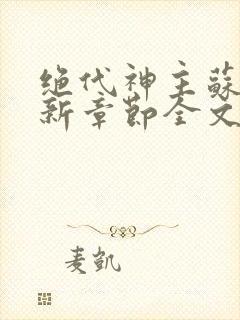 绝代神主蘇
新章節全文
麦凱